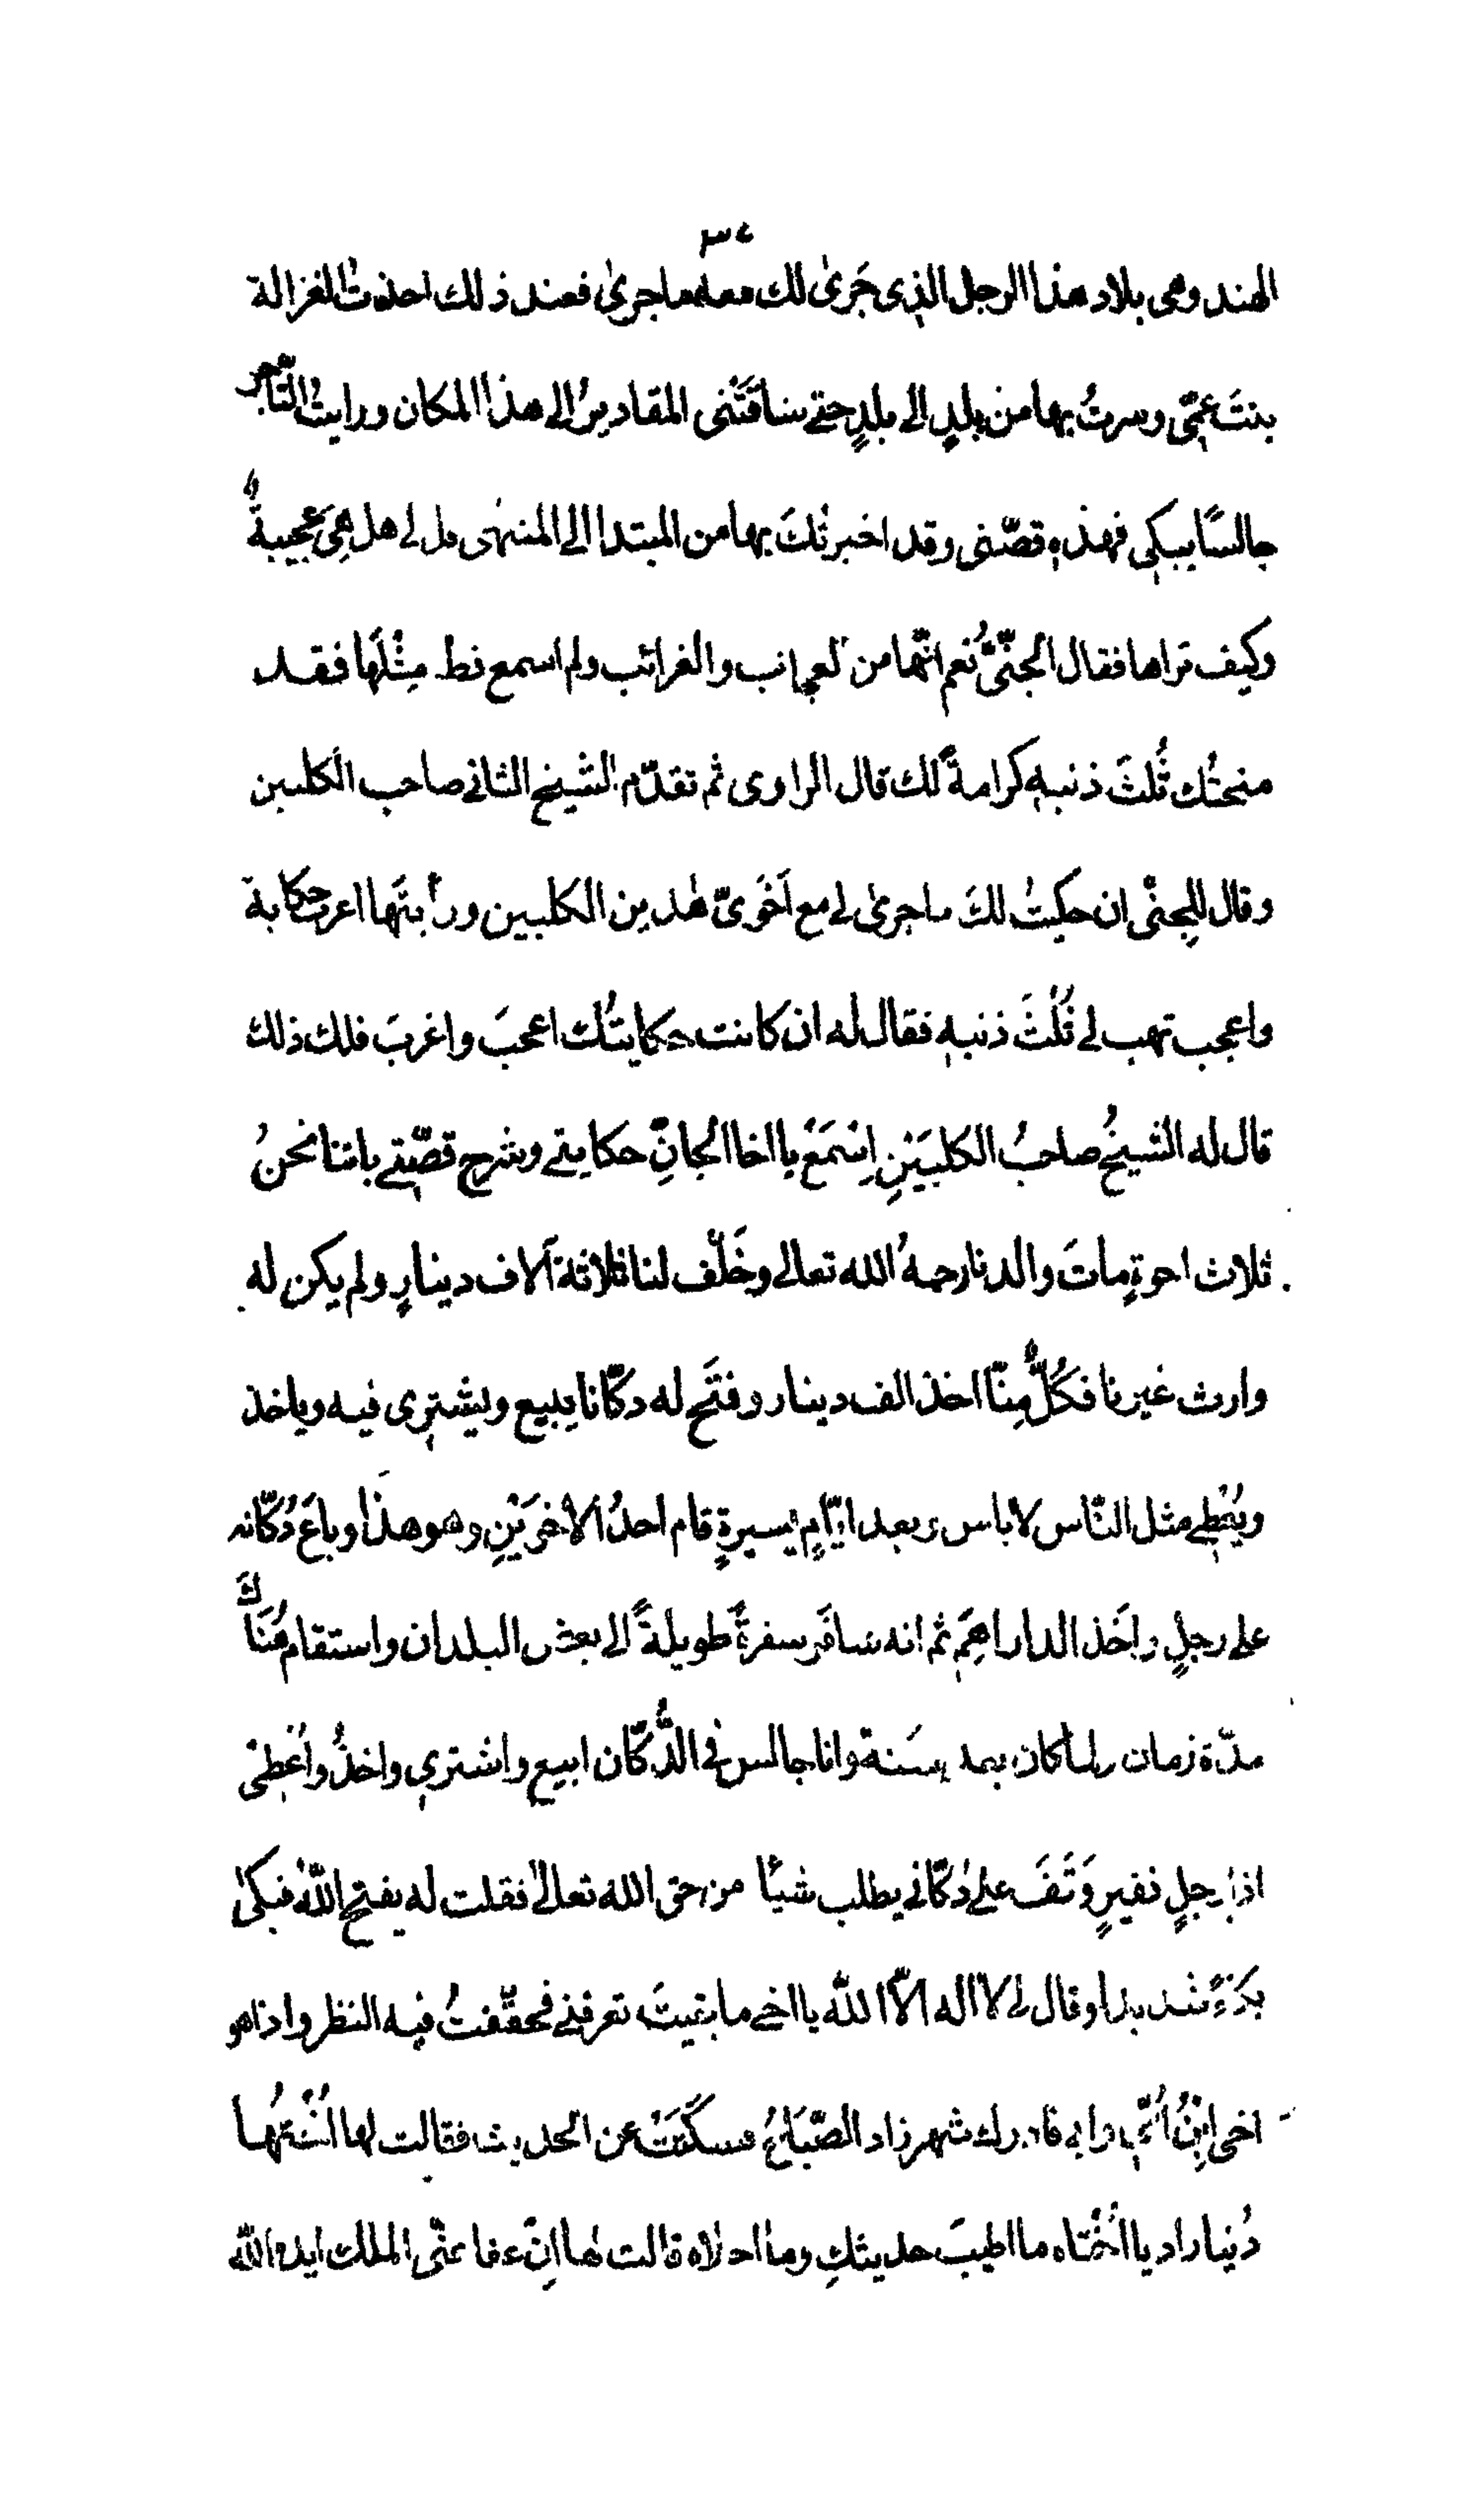 ٣٤
الهند وهى بلاد هذا الرجل الذى جَرىٰ لك معه ماجرىٰ فعند ذلك اخذتُ الغزالة
بنتَ عمّى وسرتُ بها من بلدٍ الى بلدٍ حتى ساقَتْنى المقاديرُ الى هذا المكان ورايتُ التّاجر
جالسًا يبكى فهذه قصّتى وقد اخبرتُكَ بها من المبتدا الى المنتهى قل لى هل هِىَ عجيبةٌ
وكيف تراها فقال الجنّىُّ نعم انّها من العجائب والغرائب ولم اسمع قط مِثْلَهَا فقد
منحتُك ثُلثَ ذنبه كرامةً لك قال الراوى ثم تقدّم الشيخ الثانى صاحب الكلبين
وقال للجنّى ان حكيتُ لكَ ماجرىٰ لى مع اَخَوَىّ هٰذين الكلبين ورأيتَها اغربَ حكاية
واعجب تهب لى ثُلْثَ ذنبه فقال له ان كانت حكايتُك اعجبَ واغربَ فلك ذلك
قال له الشيخُ صاحبُ الكلبَيْنِ اِسْمَعْ يا اخا الجانِّ حكايتى وشرح قصّتى باننا نحنُ
ثلاث اخوةٍ ماتَ والدنا رحمهُ الله تعالى وخَلّف لنا ثلاثة آلاف دينارٍ ولم يكن له
وارث غيرنا فكُلٌّ مِنّا اخذ الف دينار وفتَح له دكّانا يبيع ويشترى فيه وياخذ
ويُعْطِى مثل النّاس لاباس وبعد ايّامٍ يسيرةٍ قام احدُ الاخوَيْنِ وهو هذَا وباعَ دُكّانه
على رجلٍ واخَذ الدراهِمَ ثم انه سافَر سفرةً طويلةً الى بعض البلدان واستقام هُنَاكَ
مدّة زمان ولما كان بعد سَنة وانا جالس فى الدُّكّان ابيع واشترى واخذُ واُعْطِىْ
اذا برجلٍ فقيرٍ وَقَفَ على دُكّانى يطلب شيأً من حق الله تعالىٰ فقلت له يفتح اللهُ فبكىٰ
بكاءً شديدا وقال لى لا اله الّا اللّٰه يا اخى ما بقيتَ تعرفنى فحققتُ فيه النظر واذا هو
اخى اِبْنُ اُمّى وابى فادرك شهرزاد الصّبَاحُ فسكَتَتْ عن الحديث فقالت لها اُخْتُهُا
دُنيازاد يا اُخْتاه ما اطيبَ حديثكِ وما احلاه قالت لها اِنْ عفا عنّى الملك ايده اللّٰه